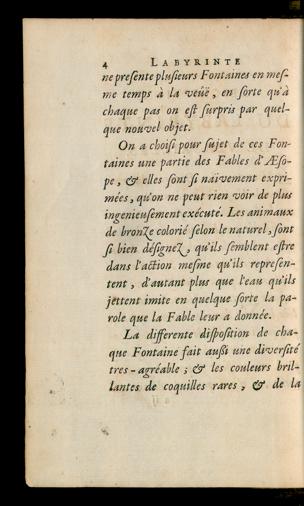 4 LABYRINTE
ne preſente pluſieurs Fontaines en meſ-
me temps à la veüë, en ſorte qu'à
chaque pas on eſt ſurpris par quel-
que nouvel objet.
On a choiſi pour ſujet de ces Fon-
taines une partie des Fables d'Æſo-
pe, & elles ſont ſi naivement expri-
mées, qu'on ne peut rien voir de plus
ingenieuſement exécuté. Les animaux
de bronze colorié ſelon le naturel, ſont
ſi bien déſignez, qu'ils ſemblent eſtre
dans l'action meſme qu'ils repreſen-
tent, d'autant plus que l'eau qu'ils
jettent imite en quelque ſorte la pa-
role que la Fable leur a donnée.
La differente diſpoſition de cha-
que Fontaine fait auſſi une diverſité
tres-agréable ; & les couleurs bril-
lantes de coquilles rares, & de la